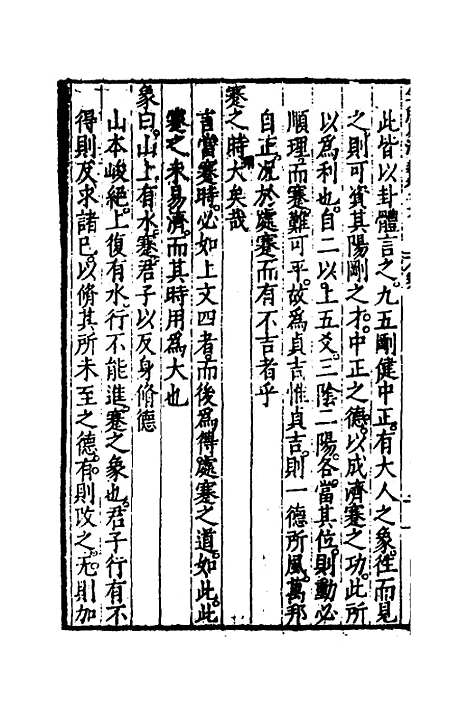 此皆以卦體言之。九五剛健中正。有大人之象。往而見
之。則可資其陽剛之才。中正之德。以成濟蹇之功。此所
以爲利也。自二以上五爻。三陰二陽。各當其位。則動必
順理。而蹇難可平。故爲貞吉。惟貞吉。則一德所風。萬邦
自正。况於處蹇而有不吉者乎
蹇之時用大矣哉
言當蹇時。必如上文四者。而後爲得處蹇之道。如此。此
蹇之未易濟。而其時用爲大也
象曰。山上有水。蹇。君子以反身脩德
山本峻絕。上復有水。行不能進。蹇之象也。君子行有不
得。則反求諸已。以脩其所未至之德。有則改之。无則加